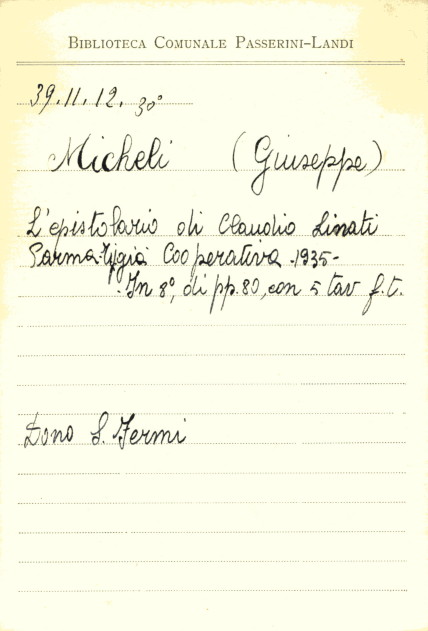 BIBLIOTECA COMUNALE PASSERINI-LANDI
39.11.12. 30°
Micheli (Giuseppe)
L'epistolario di Claudio Linati
Parma-Tipia Cooperativa -1935-
In 8°, di pp. 80, con 5 tav f.t.
Dono S. Fermi